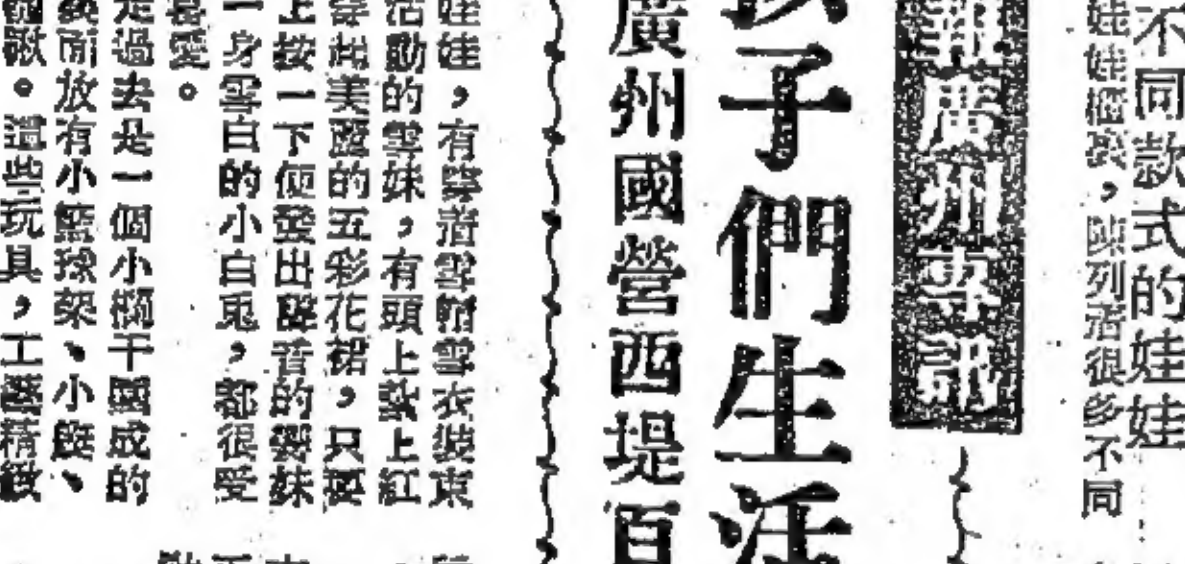 不同款式的娃娃
娃娃櫃裝，陳列着很多不同
廣州專訊
孩子們生活
廣州國營西堤百
娃娃，有穿着雪帽雪衣裝束
活動的雪妹，有頭上紮上紅
穿起美麗的五彩花裙，只要
上按一下便發出聲音的嬰妹
一身雪白的小白兎，都很受
喜愛。
走過去是一個小欄干圍成的
裏面放有小籃球架、小凳、
鞦韆。這些玩具，工藝精緻